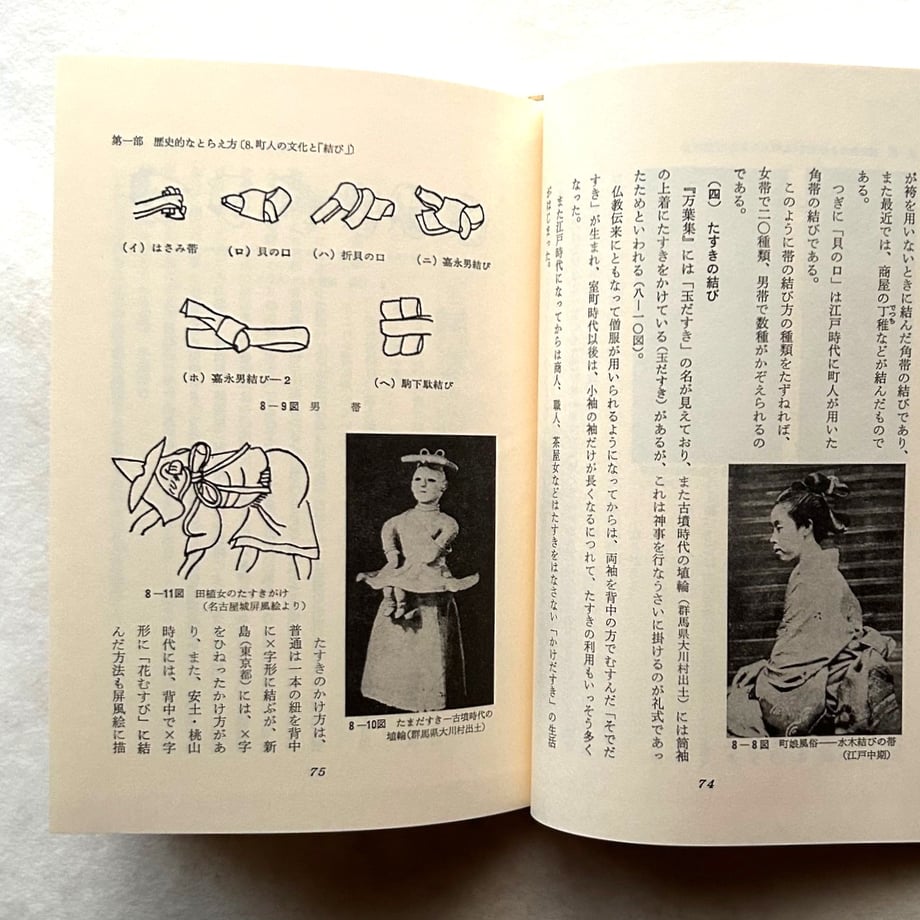 が袴を用いないときに結んだ角帯の結びであり、
また最近では、商屋の丁稚などが結んだもので
ある。
つぎに「貝の口」は江戸時代に町人が用いた
角帯の結びである。
このように帯の結び方の種類をたずねれば、
女帯で二〇種類、男帯で数種がかぞえられるの
である。
(四) たすきの結び
『万葉集』には「玉だすき」の名が見えており、また古墳時代の埴輪(群馬県大川村出土)には筒袖
の上着にたすきをかけている(玉だすき)があるが、これは神事を行なうさいに掛けるのが礼式であっ
たためといわれる(八—一〇図)。
仏教伝来にともなって僧服が用いられるようになってからは、両袖を背中の方でむすんだ「そでだ
すき」が生まれ、室町時代以後は、小袖の袖だけが長くなるにつれて、たすきの利用もいっそう多く
なった。
また江戸時代になってからは商人、職人、茶屋女などはたすきをはなさない「かけだすき」の生活
がはじまった。
8—8図 町娘風俗——水木結びの帯
(江戸中期)
74
第一部 歴史的なとらえ方〔8、町人の文化と「結び」〕
(イ) はさみ帯
(ロ) 貝の口
(ハ) 折貝の口
(ニ) 嘉永男結び
(ホ) 嘉永男結び—2
(ヘ) 駒下駄結び
8—9図 男 帯
8—11図 田植女のたすきがけ
(名古屋城屏風絵より)
8—10図 たまだすき—古墳時代の
埴輪(群馬県大川村出土)
たすきのかけ方は、
普通は一本の紐を背中
に×字形に結ぶが、新
島(東京都)には、×字
をひねったかけ方があ
り、また、安土・桃山
時代には、背中で×字
形に「花むすび」に結
んだ方法も屏風絵に描
75